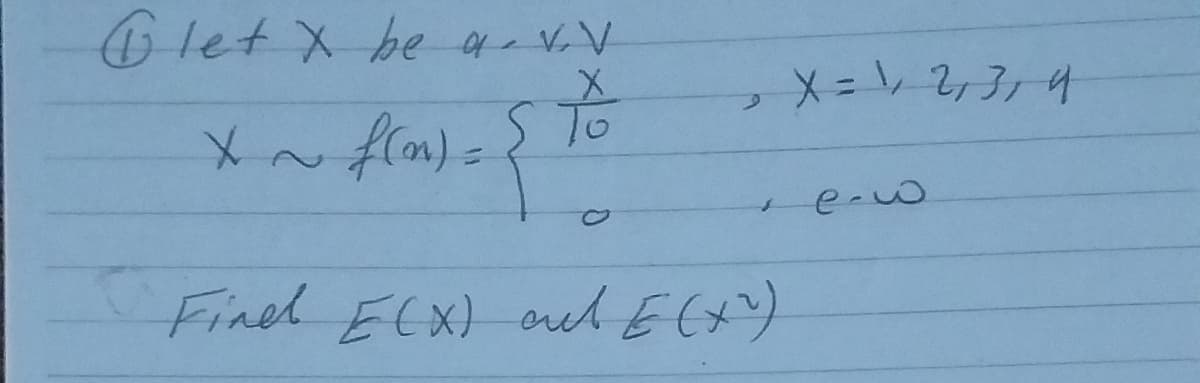 ① let X be a r.v.
X ~ f(x) = { x/10 , x = 1, 2, 3, 4
0 , e.w
Find E(X) and E(X²)